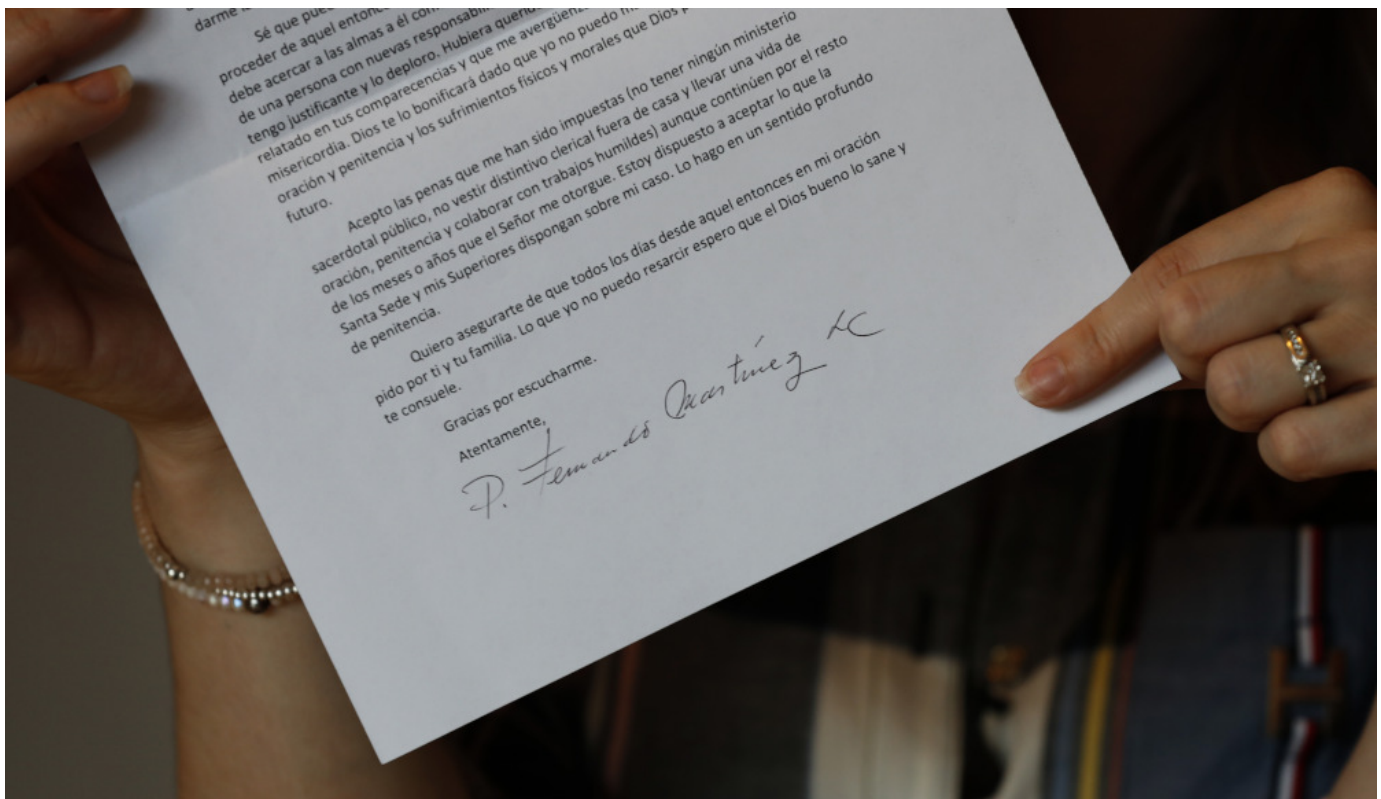 darme
Sé que pue
proceder de aquel enton
debe acercar a las almas a él con
de una persona con nuevas responsabili
tengo justificante y lo deploro. Hubiera queri
relatado en tus comparecencias y que me avergüenz
misericordia. Dios te lo bonificará dado que yo no puedo
oración y penitencia y los sufrimientos físicos y morales que Dios
futuro.
Acepto las penas que me han sido impuestas (no tener ningún ministerio
sacerdotal público, no vestir distintivo clerical fuera de casa y llevar una vida de
oración, penitencia y colaborar con trabajos humildes) aunque continúen por el resto
de los meses o años que el Señor me otorgue. Estoy dispuesto a aceptar lo que la
Santa Sede y mis Superiores dispongan sobre mi caso. Lo hago en un sentido profundo
de penitencia.
Quiero asegurarte de que todos los días desde aquel entonces en mi oración
pido por ti y tu familia. Lo que yo no puedo resarcir espero que el Dios bueno lo sane y
te consuele.
Gracias por escucharme.
Atentamente,
P. Fernando Martínez LC